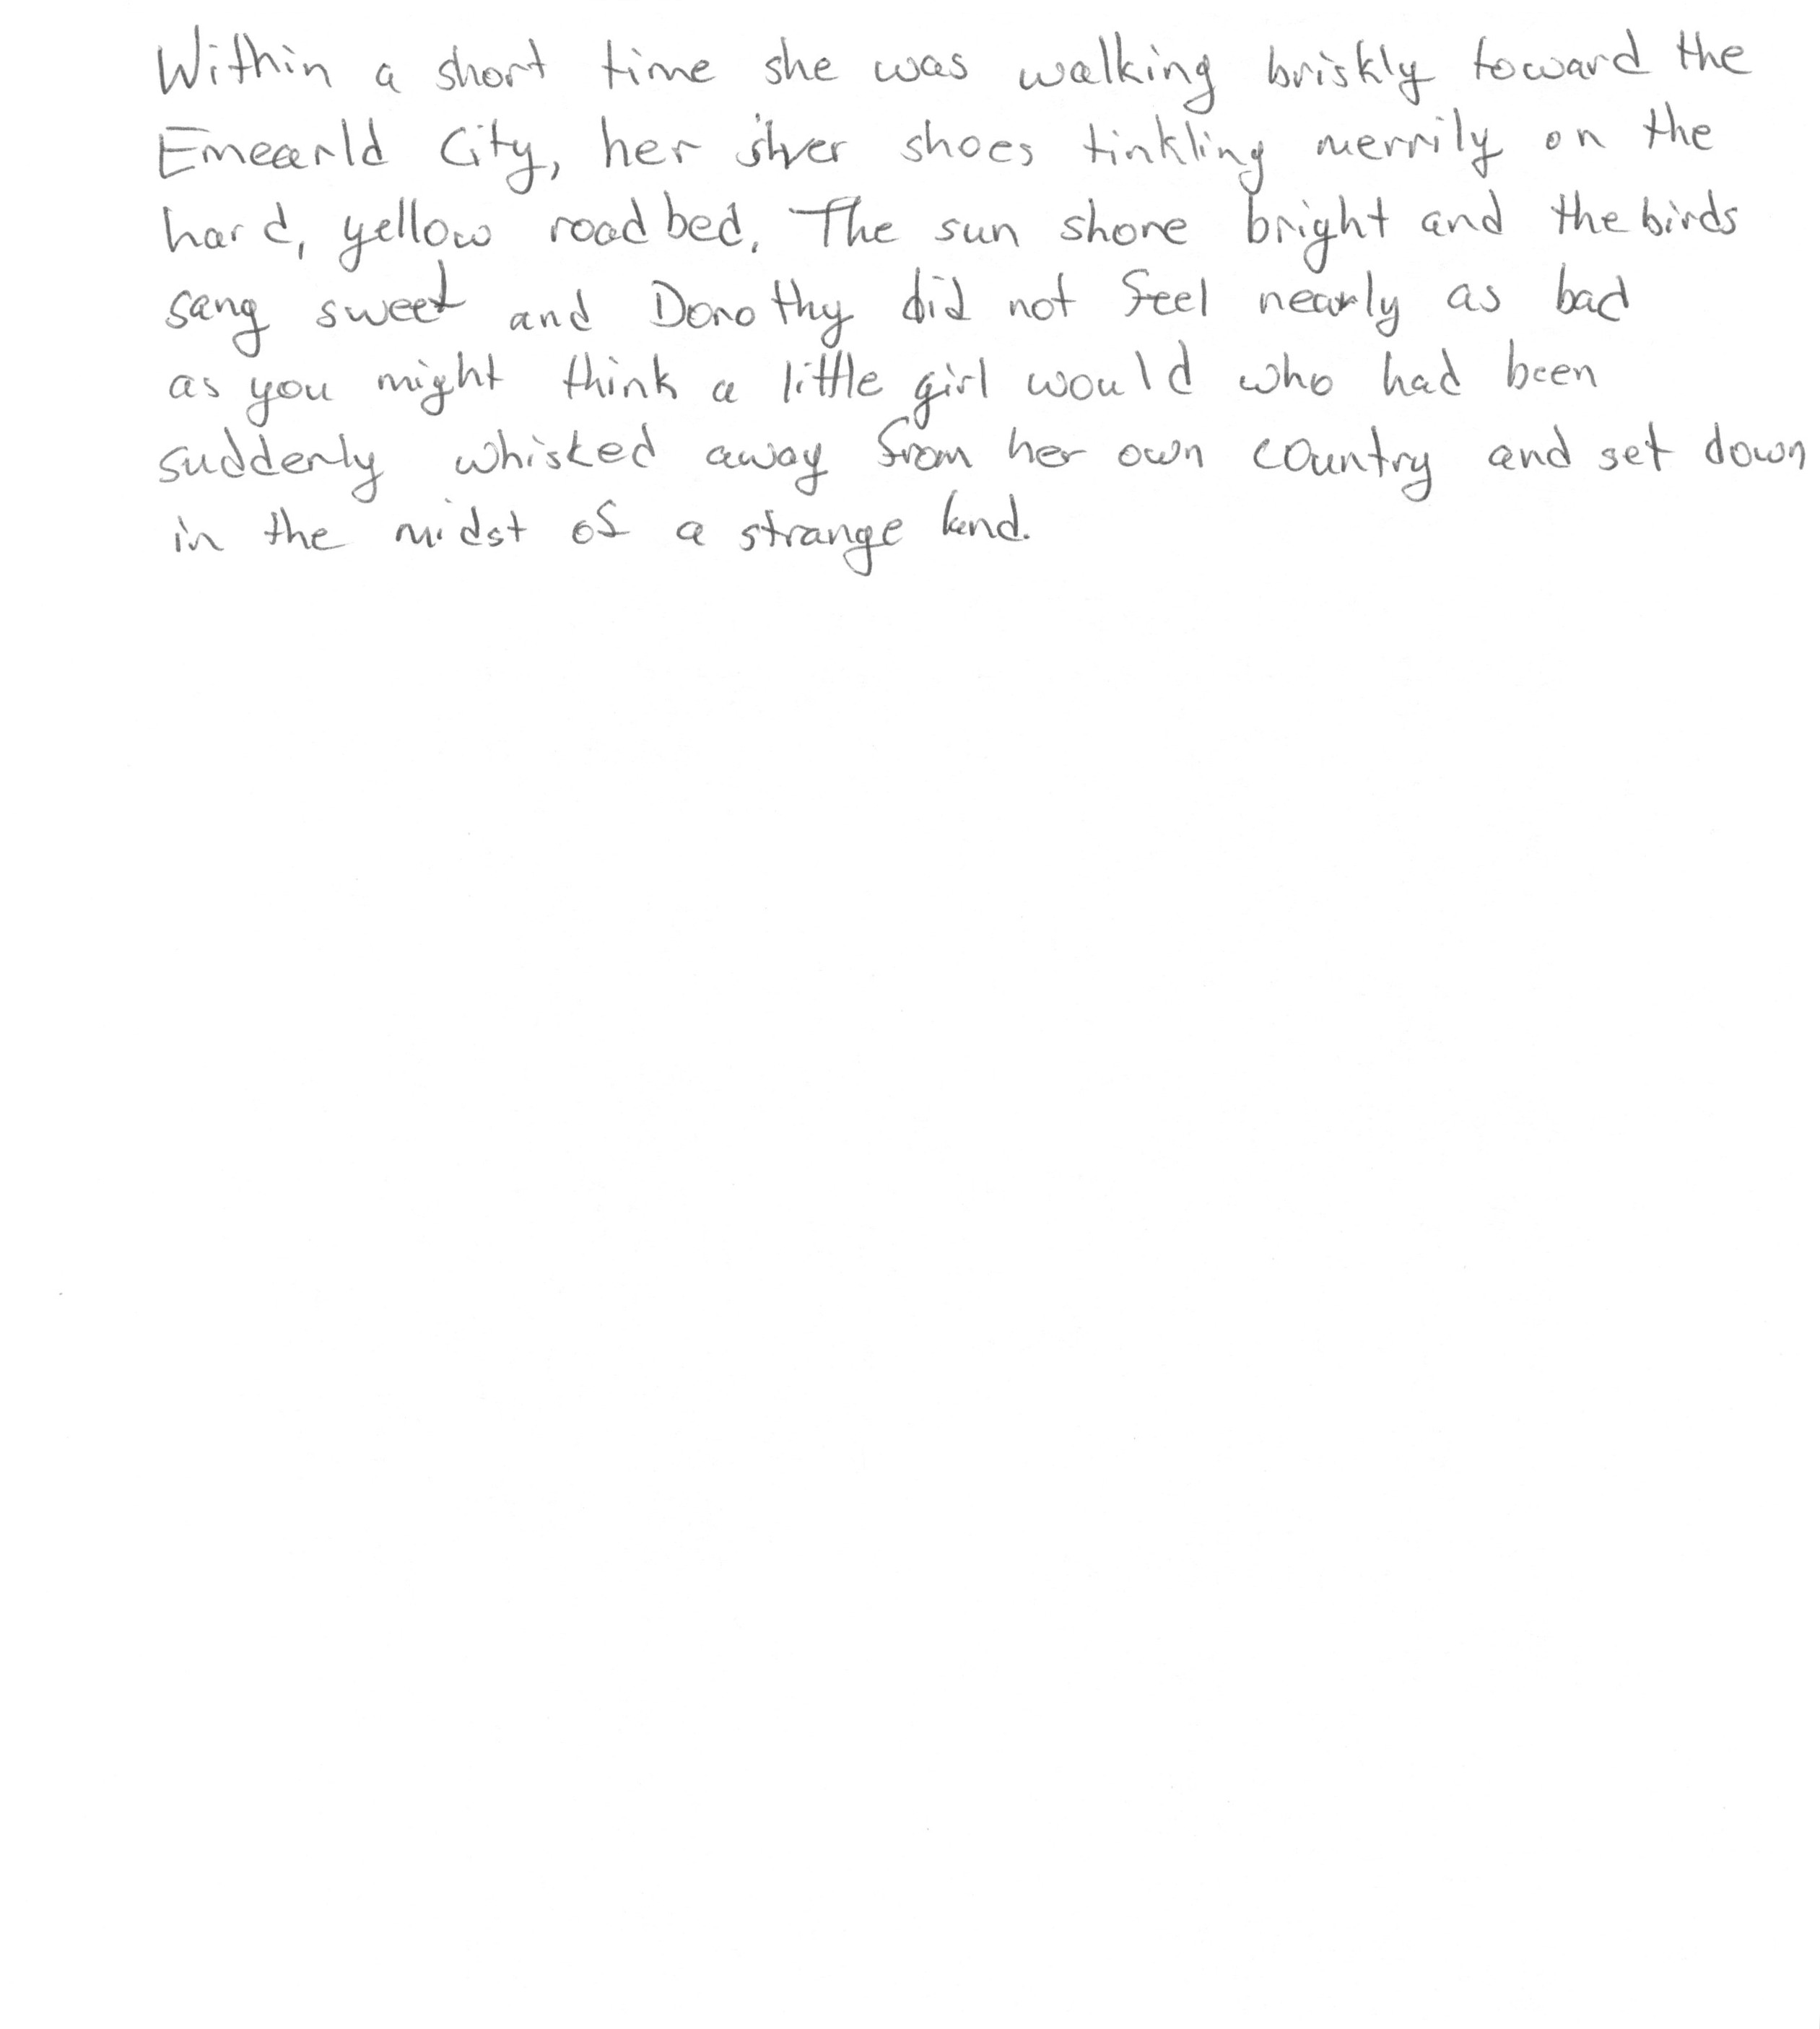 Within a short time she was walking briskly toward the
Emeearld City, her silver shoes tinkling merrily on the
hard, yellow roadbed. The sun shone bright and the birds
sang sweet and Dorothy did not feel nearly as bad
as you might think a little girl would who had been
suddenly whisked away from her own country and set down
in the midst of a strange land.